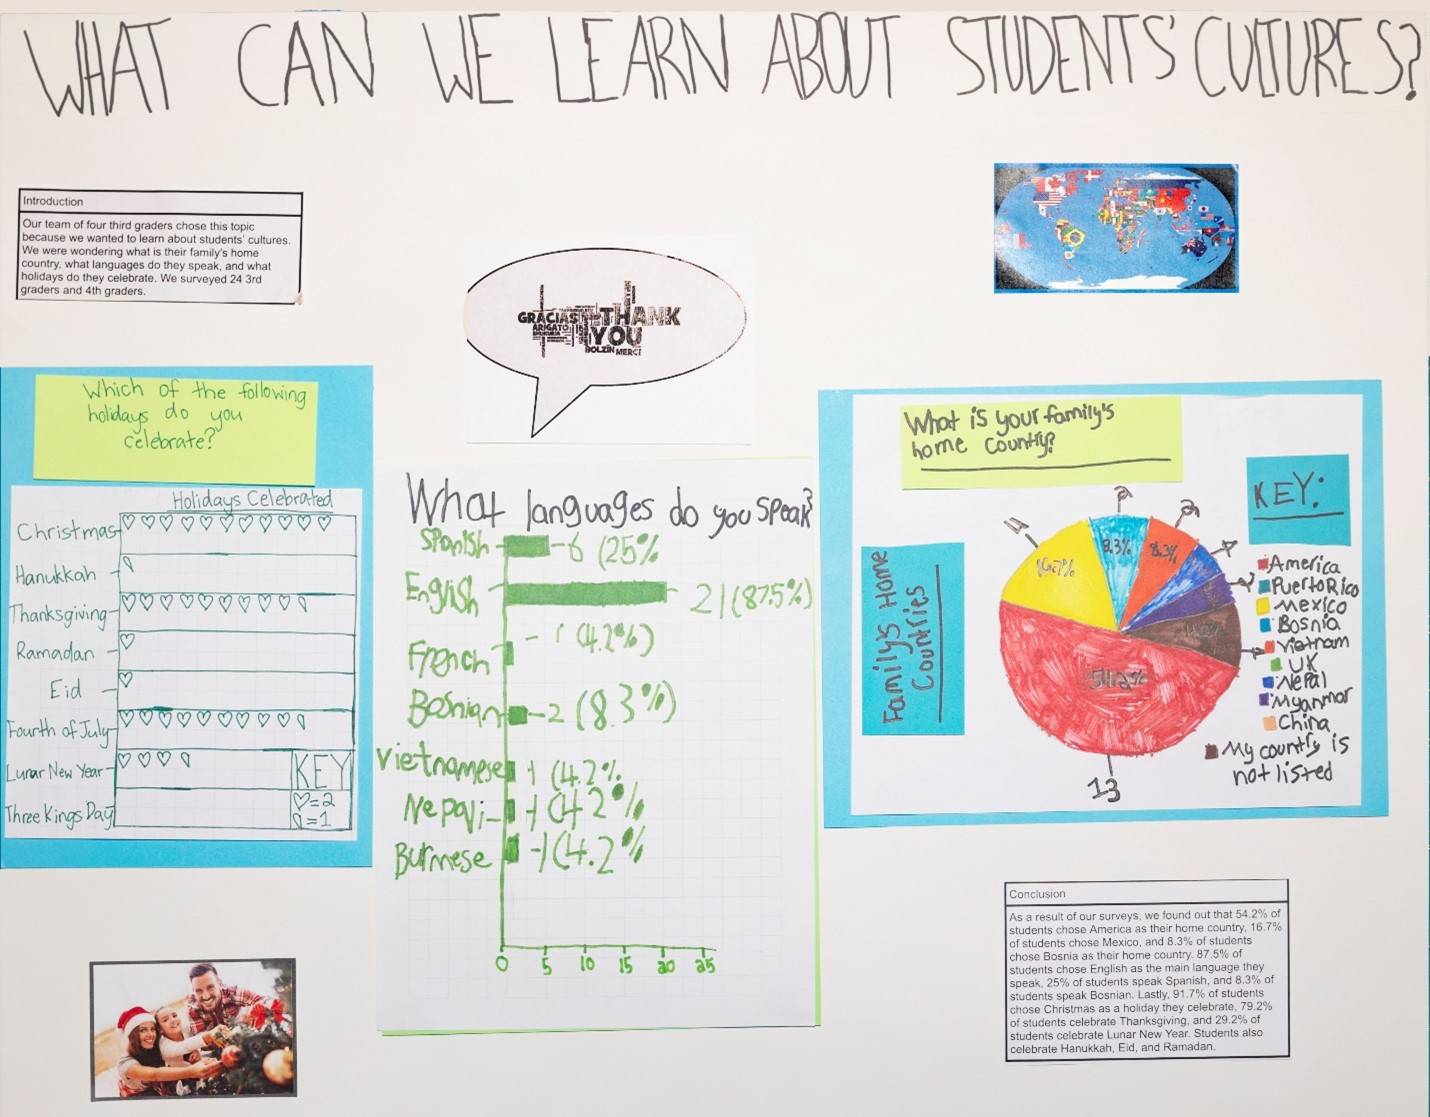 WHAT CAN WE LEARN ABOUT STUDENTS' CULTURES?
Introduction
Our team of four third graders chose this topic
because we wanted to learn about students' cultures.
We were wondering what is their family's home
country, what languages do they speak, and what
holidays do they celebrate. We surveyed 24 3rd
graders and 4th graders.
GRACIAS THANK
ARIGATO YOU
BOLZIN MERCI
Which of the following
holidays do you
celebrate?
Holidays Celebrated
Christmas
Hanukkah
Thanksgiving
Ramadan
Eid
Fourth of July
Lunar New Year
Three Kings Day
KEY
=2
=1
What languages do you speak?
Spanish 6 (25%
English 21 (87.5%)
French 1 (4.2%)
Bosnian 2 (8.3%)
Vietnamese 1 (4.2%
Nepali 1 (4.2%
Burmese 1 (4.2%
0 5 10 15 20 25
What is your family's
home country?
Family's Home
Countries
4
2
2
16.7%
8.3%
8.3%
54.2%
13
KEY:
America
Puerto Rico
Mexico
Bosnia
Vietnam
UK
Nepal
Myanmar
China
My country is
not listed
Conclusion
As a result of our surveys, we found out that 54.2% of
students chose America as their home country, 16.7%
of students chose Mexico, and 8.3% of students
chose Bosnia as their home country. 87.5% of
students chose English as the main language they
speak, 25% of students speak Spanish, and 8.3% of
students speak Bosnian. Lastly, 91.7% of students
chose Christmas as a holiday they celebrate, 79.2%
of students celebrate Thanksgiving, and 29.2% of
students celebrate Lunar New Year. Students also
celebrate Hanukkah, Eid, and Ramadan.